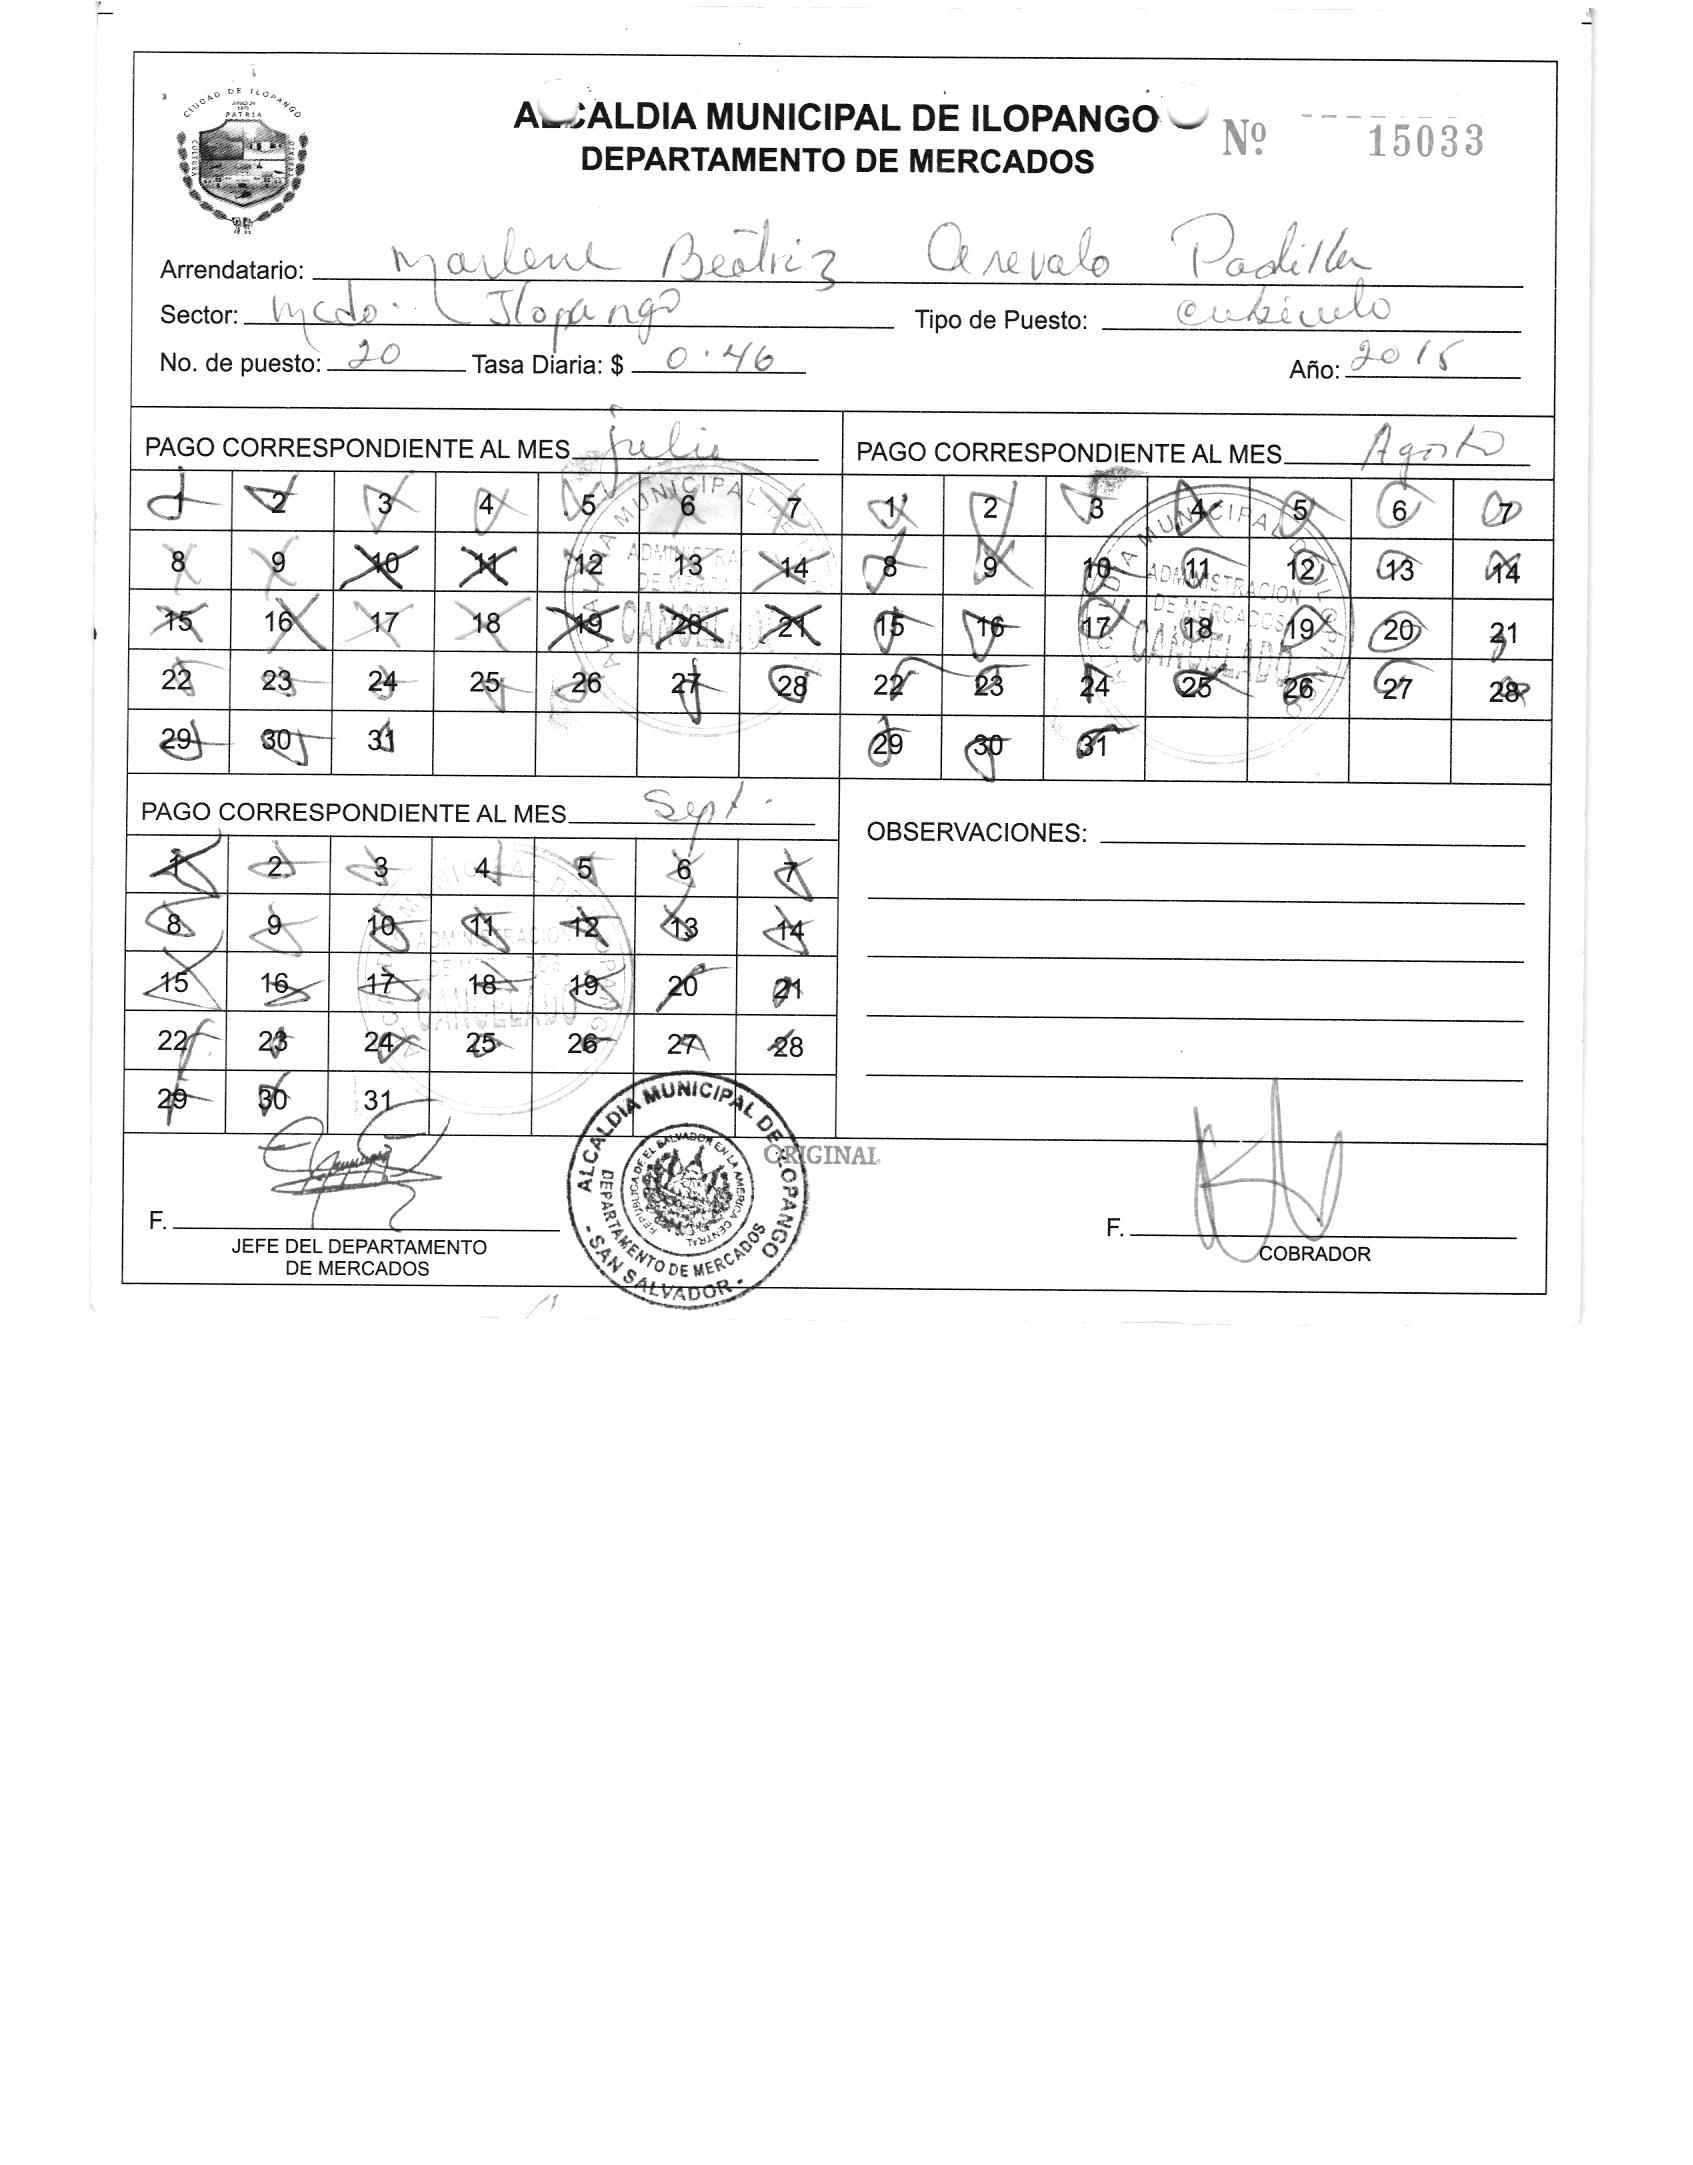 CIUDAD DE ILOPANGO
PATRIA
ALCALDIA MUNICIPAL DE ILOPANGO
Nº 15033
DEPARTAMENTO DE MERCADOS
Arrendatario: Marlene Beatriz Arevalo Padilla
Sector: Mcdo. Ilopango Tipo de Puesto: cubiculo
No. de puesto: 20 Tasa Diaria: $ 0.46 Año: 2015
PAGO CORRESPONDIENTE AL MES Julio
1 2 3 4 5 6 7
8 9 10 11 12 13 14
15 16 17 18 19 20 21
22 23 24 25 26 27 28
29 30 31
ADMINISTRACION
DE MERCADOS
CANCELADO
PAGO CORRESPONDIENTE AL MES Agosto
1 2 3 4 5 6 7
8 9 10 11 12 13 14
15 16 17 18 19 20 21
22 23 24 25 26 27 28
29 30 31
ALCALDIA MUNICIPAL DE ILOPANGO
ADMINISTRACION
DE MERCADOS
CANCELADO
PAGO CORRESPONDIENTE AL MES Sept.
1 2 3 4 5 6 7
8 9 10 11 12 13 14
15 16 17 18 19 20 21
22 23 24 25 26 27 28
29 30 31
ADMINISTRACION
DE MERCADOS
CANCELADO
OBSERVACIONES:
ORIGINAL
ALCALDIA MUNICIPAL DE ILOPANGO
REPUBLICA DE EL SALVADOR EN LA AMERICA CENTRAL
DEPARTAMENTO DE MERCADOS
- SAN SALVADOR -
F.
JEFE DEL DEPARTAMENTO
DE MERCADOS
F.
COBRADOR